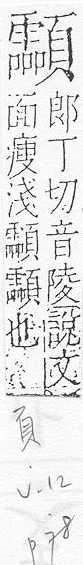 𩖊
郎丁切音陵說文
面瘦淺𩖊𩖊也
頁
V.12
p78